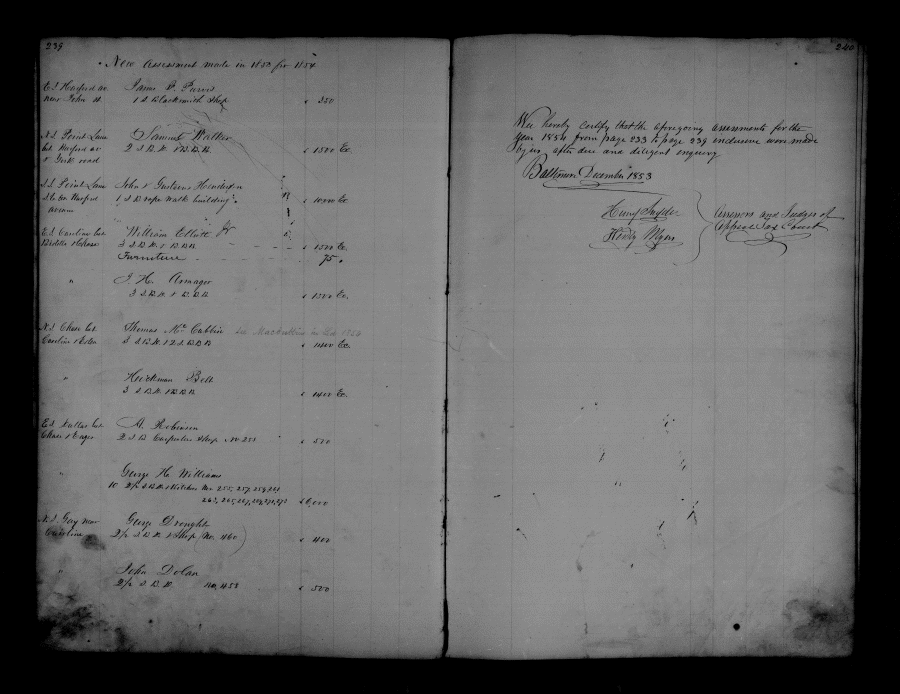 239
New Assessment made in 1853 for 1854
E S Harford av James P. Purvis
near John st. 1 S Blacksmith Shop " 350
N. S. Point Lane Samuel Walker
bet Harford av 2 S B. H. 1 B. B. B. " 1500 Ex.
& York road
S. S. Point Lane John & Gustavus Henderson
Harford 1 S B rope walk building " 1000 Ex
avenue
E. S. Caroline bet William Elliott Jr
Biddle & Chase 3 S B. H. 1 B. B. B. " 1500 Ex.
Furniture 75 "
" J. H. Armager
3 S B. H. 1 B. B. B. " 1500 Ex.
N. S. Chase bet Thomas Mc Cubbin see Maccubbin in 1854
Caroline & Eden 3 S B. H. 1 2 S. B. B. B " 1400 Ex.
" Hickman Belt
3 S B. H. 1 B. B. B. " 1400 Ex.
E S Dallas bet A. Robinson
Chase & Eager 2 S B Carpenter Shop No 255 " 500
" George H. Williams
10 2½ S B H & Kitchen No. 255, 257, 259, 261
263, 265, 267, 269, 271, 273 $6,000
N. S. Gay near George Drought
Caroline 2½ S B H & Shop (No. 460) " 400
" John Dolan
2½ S. B. H. No. 458 " 500
240
We hereby certify that the aforegoing assessments for the
year 1854 from page 233 to page 239 inclusive were made
by us, after due and diligent inquiry
Baltimore December 1853
Henry Snyder Assessors and Judges of
Henry Myers Appeal Tax Court